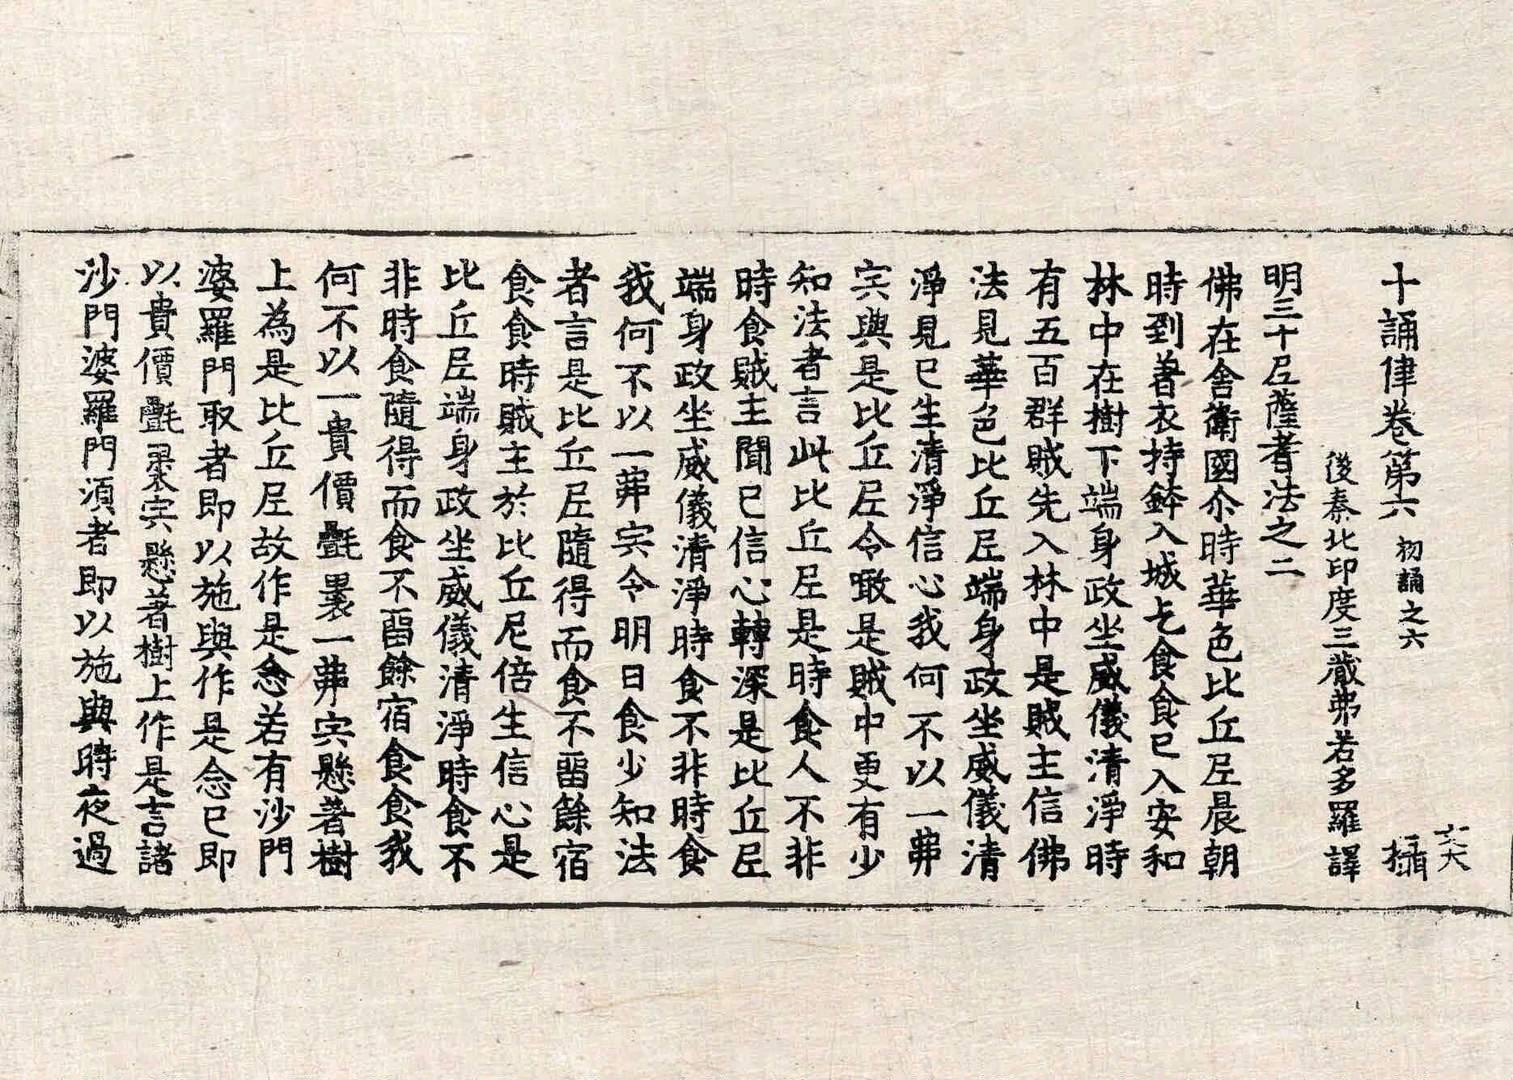 十誦律卷第六 初誦之六 攝
後秦北印度三藏弗若多羅譯
明三十尼薩耆法之二
佛在舍衛國尒時華色比丘尼晨朝
時到著衣持鉢入城乞食食已入安和
林中在樹下端身政坐威儀清淨時
有五百群賊先入林中是賊主信佛
法見華色比丘尼端身政坐威儀清
淨見已生清淨信心我何不以一𦙶
宍與是比丘尼令噉是賊中更有少
知法者言此比丘尼是時食人不非
時食賊主聞已信心轉深是比丘尼
端身政坐威儀清淨時食不非時食
我何不以一𦙶宍令明日食少知法
者言是比丘尼隨得而食不留餘宿
食食時賊主於比丘尼倍生信心是
比丘尼端身政坐威儀清淨時食不
非時食隨得而食不留餘宿食食我
何不以一貴價㲲裹一𦙶宍懸著樹
上為是比丘尼故作是念若有沙門
婆羅門取者即以施與作是念已即
以貴價㲲裹宍懸著樹上作是言諸
沙門婆羅門須者即以施與時夜過